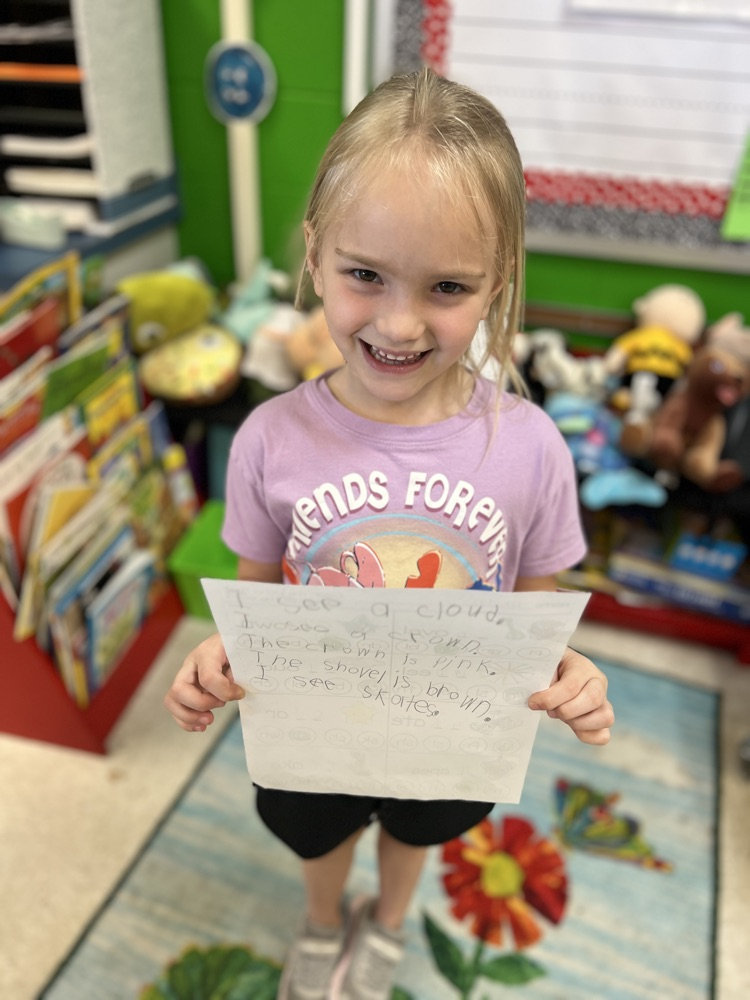 FRIENDS FOREVER
I see a cloud.
I wosee a crown.
The crown is pink.
The shovel is brown.
I see skates.